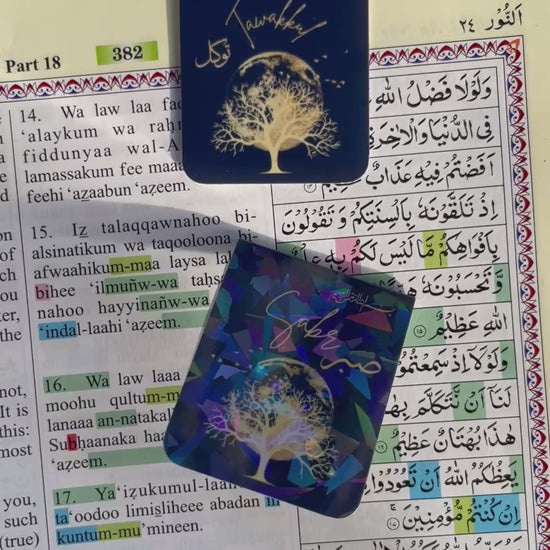 النُّور ٢٤
Part 18
382
Tawakkul
توكل
14. Wa law laa
'alaykum wa
fiddunyaa wal-
lamassakum fee
feehi 'aẓaabun 'aẓeem.
15. Iẕ talaqqawnahoo bi-
alsinatikum wa taqooloona bi-
afwaahikum-maa laysa
bihee 'ilmuñw-wa
nahoo hayyinañw-wa
'indal-laahi 'aẓeem.
16. Wa law laaa
moohu qultum-
lanaaa an-natakal
Subḥaanaka
'aẓeem.
17. Ya'iẓukumul-laah
ta'oodoo limisliheee abadan in
kuntum-mu'mineen.
not,
It is
this:
most
you,
such
(true)
Sabr
صبر
وَلَوْلَا فَضْلُ اللهِ
فِى الدُّنْيَا وَالْاٰخِرَةِ
اَفَضْتُمْ فِيْهِ عَذَابٌ
اِذْ تَلَقَّوْنَهٗ بِاَلْسِنَتِكُمْ وَتَقُوْلُوْنَ
بِاَفْوَاهِكُمْ مَّا لَيْسَ لَكُمْ بِهٖ
وَّتَحْسَبُوْنَهٗ
اللهِ عَظِيْمٌ ١٥
وَلَوْلَا اِذْ سَمِعْتُمُوْهُ
لَنَا اَنْ نَّتَكَلَّمَ بِهٰذَا
هٰذَا بُهْتَانٌ عَظِيْمٌ ١٦
يَعِظُكُمُ اللهُ اَنْ تَعُوْدُوْا
اِنْ كُنْتُمْ مُّؤْمِنِيْنَ ١٧